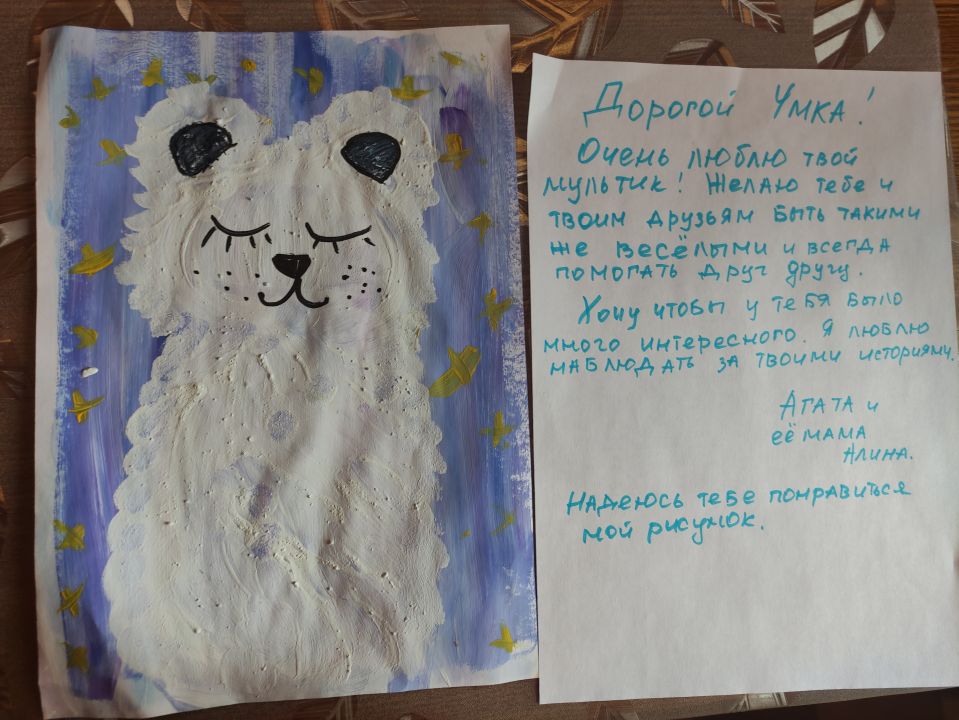 Дорогой Умка!
Очень люблю твой
мультик! Желаю тебе и
твоим друзьям быть такими
же весёлыми и всегда
помогать друг другу.
Хочу чтобы у тебя было
много интересного. Я люблю
наблюдать за твоими историями.
Агата и
её мама
Алина.
Надеюсь тебе понравиться
мой рисунок.